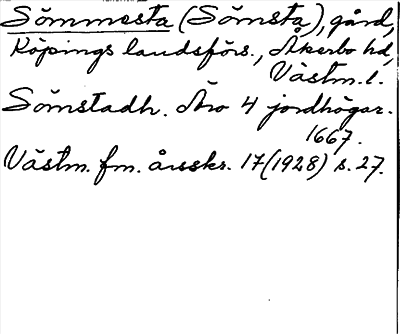 Sömmesta (Sömsta), gård,
Köpings landsförs., Åkerbo hd,
Västm. l.
Sömstadh. Äro 4 jordhögar.
1667.
Västm. fm. årsskr. 17 (1928) s. 27.